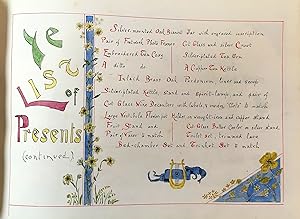 Ye
List
of
Presents
(continued)
Silver-mounted Oak Biscuit Jar with engraved inscription
Pair of Framed Photo Frames
Cut Glass and silver Cruet
Embroidered Tea Cosy
Silverplated Tea Urn
A ditto do
A Copper Tea Kettle
Inlaid Brass Oak
Silverplated Kettle, stand and Spirit-lamp, and pair of
Cut Glass Wine Decanters with labels &
to match
Large Vestibule Flower-pot Holder on wrought-iron and copper stand
Fruit Stand and
Cut Glass Butter Cooler on silver stand
Pair of Vases to match
Toilet Set, trimmed lace
Bed-chamber Set and Trinket Set to match